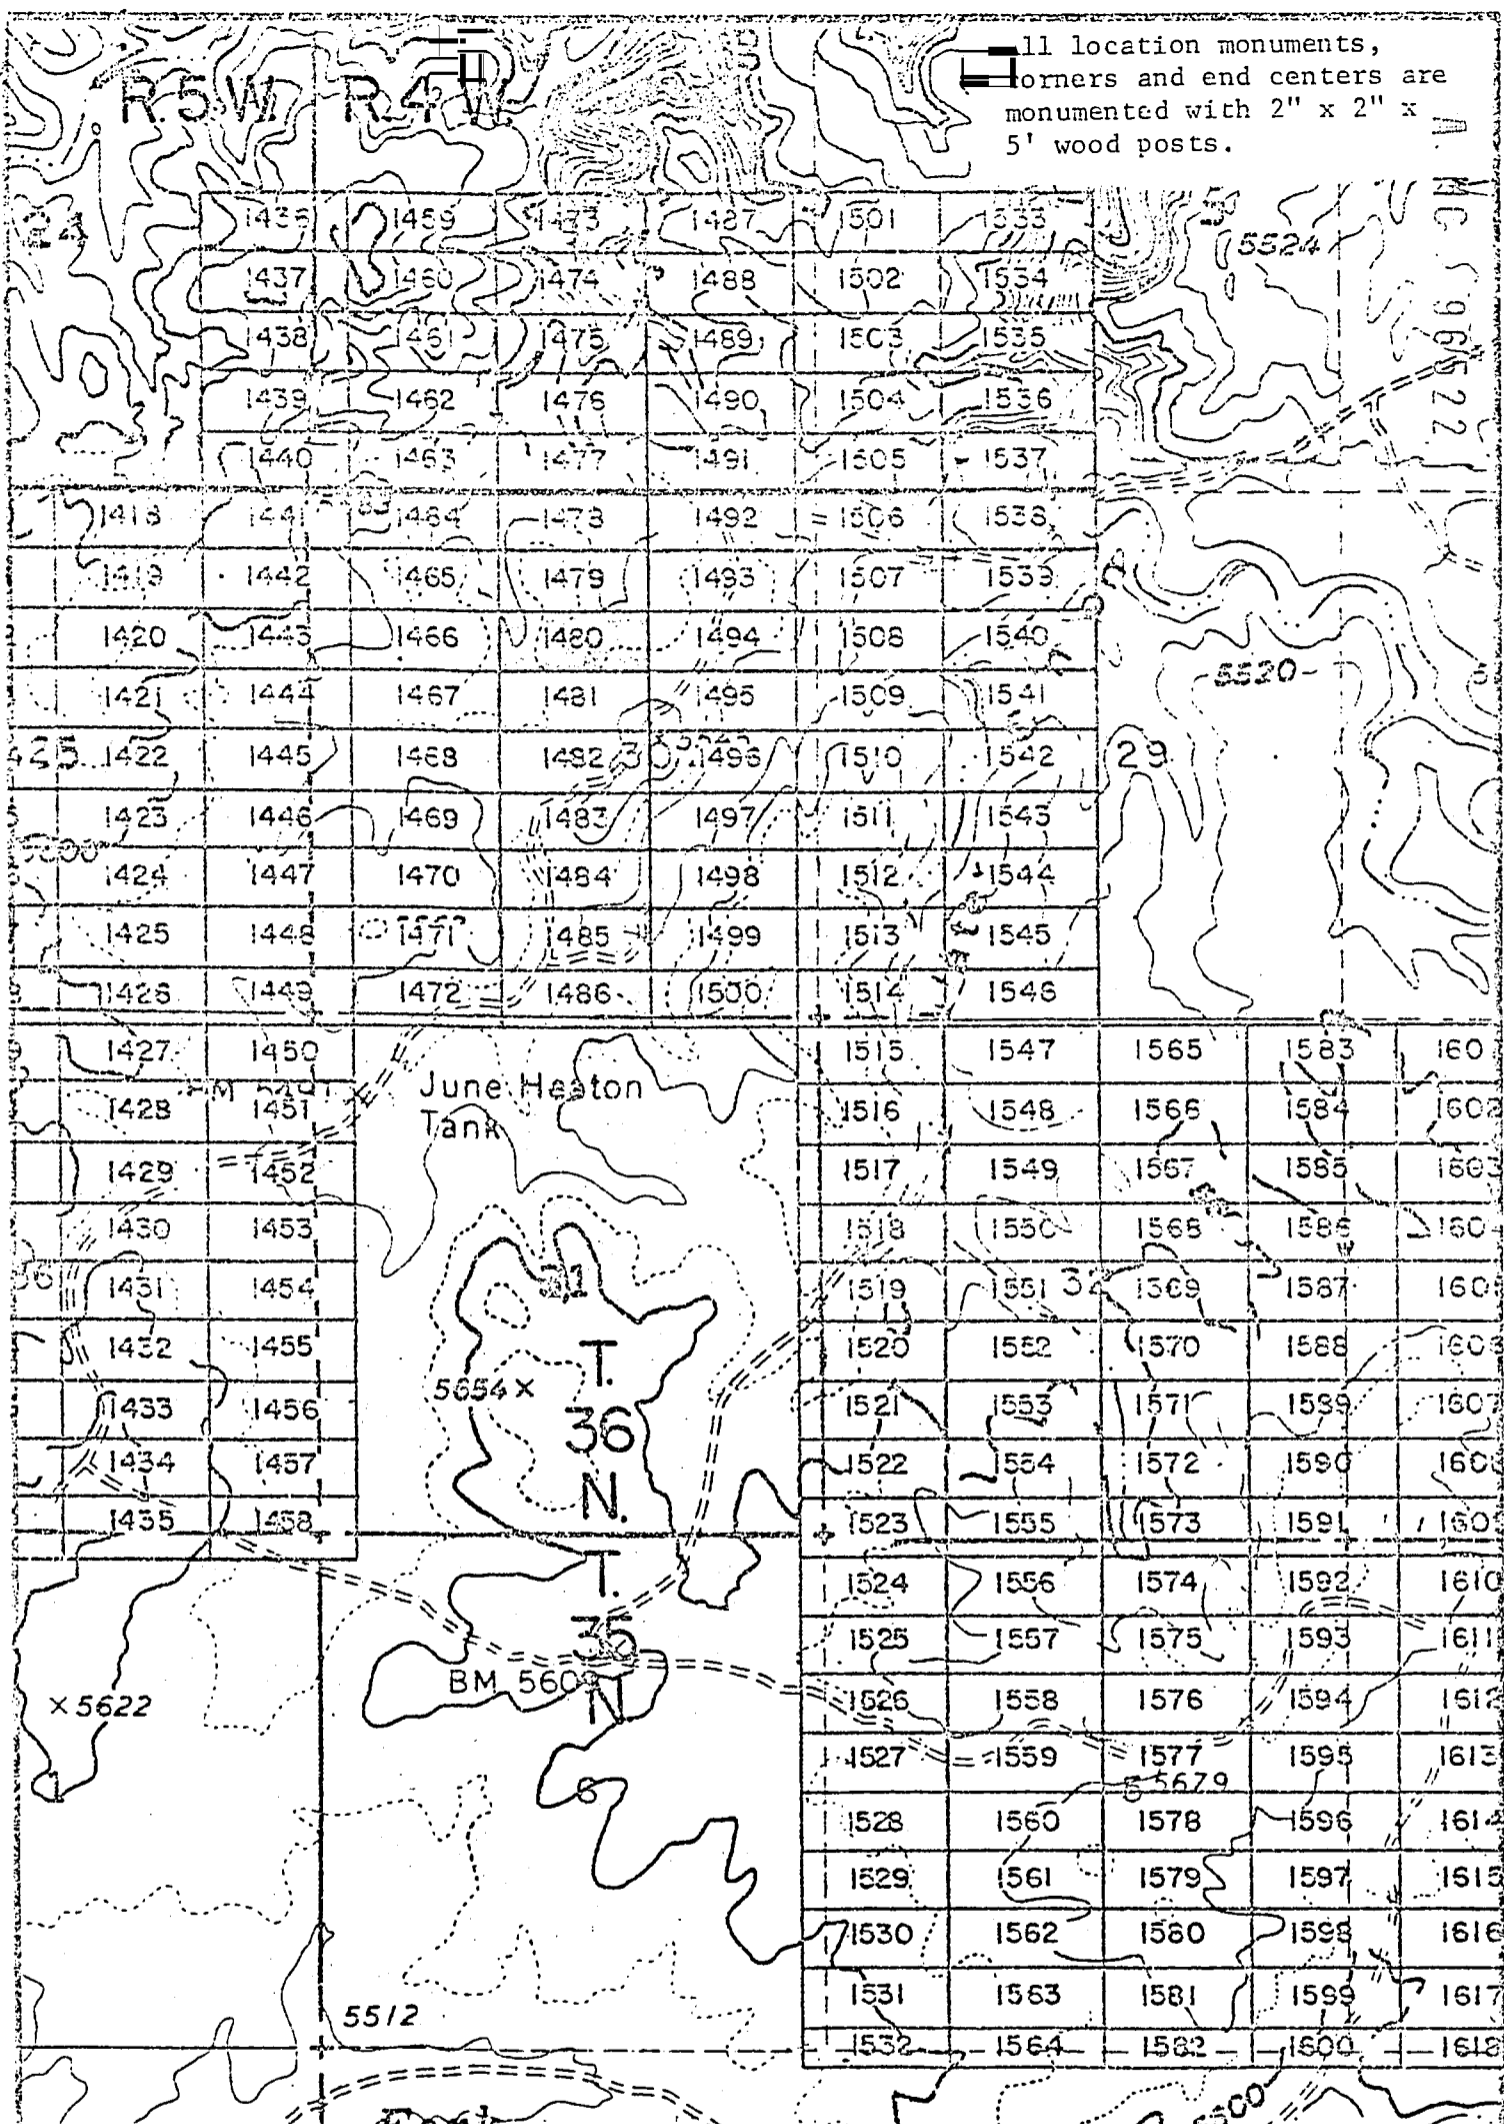 11 location monuments,
corners and end centers are
monumented with 2" x 2" x
5' wood posts.
R.5W. R.4 W.
A MC 96522
24 5524
1436 1459 1473 1487 1501 1533
1437 1460 1474 1488 1502 1534
1438 1461 1475 1489 1503 1535
1439 1462 1476 1490 1504 1536
1440 1463 1477 1491 1505 1537
1418 1441 1464 1478 1492 1506 1538
1419 1442 1465 1479 1493 1507 1539
1420 1443 1466 1480 1494 1508 1540
1421 1444 1467 1481 1495 1509 1541
5520
1422 1445 1468 1482 30 1496 1510 1542 29
1423 1446 1469 1483 1497 1511 1543
1424 1447 1470 1484 1498 1512 1544
1425 1448 1471 1485 1499 1513 1545
1426 1449 1472 1486 1500 1514 1546
1427 1450 1515 1547 1565 1583 160
June Heaton
Tank
1428 1451 1516 1548 1566 1584 1602
1429 1452 1517 1549 1567 1585 1603
1430 1453 1518 1550 1568 1586 160
36 1431 1454 31 1519 1551 32 1569 1587 160
1432 1455 1520 1552 1570 1588 160
5654 ×
1433 1456 1521 1553 1571 1589 1607
1434 1457 1522 1554 1572 1590 160
1435 1458 1523 1555 1573 1591 160
T.
36
N.
T.
35
N
1524 1556 1574 1592 1610
1525 1557 1575 1593 1611
BM 560
× 5622 1526 1558 1576 1594 1612
1527 1559 1577 1595 1613
5 5679
1 6
1528 1560 1578 1596 1614
1529 1561 1579 1597 1615
1530 1562 1580 1598 1616
1531 1563 1581 1599 1617
5512
1532 1564 1582 1600 1618
5600